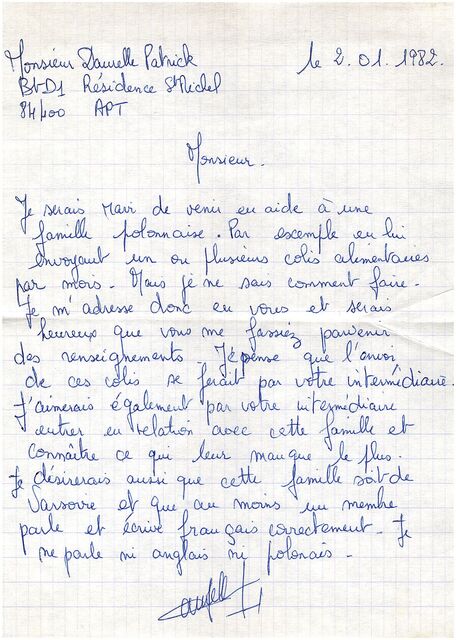 Monsieur Daurelle Patrick
le 2.01.1982.
Bt-D1 Résidence St Michel
84400 APT
Monsieur.
Je serais ravi de venir en aide à une
famille polonnaise. Par exemple en lui
envoyant un ou plusieurs colis alimentaires
par mois. Mais je ne sais comment faire.
Je m'adresse donc en vous et serais
heureux que vous me fassiez parvenir
des renseignements. Je pense que l'envoi
de ces colis se ferait par votre intermédiaire.
J'aimerais également par votre intermédiaire
entrer en relation avec cette famille et
connaître ce qui leur manque le plus.
Je désirerais aussi que cette famille soit de
Varsovie et que au moins un membre
parle et écrive français correctement. Je
ne parle ni anglais ni polonais.